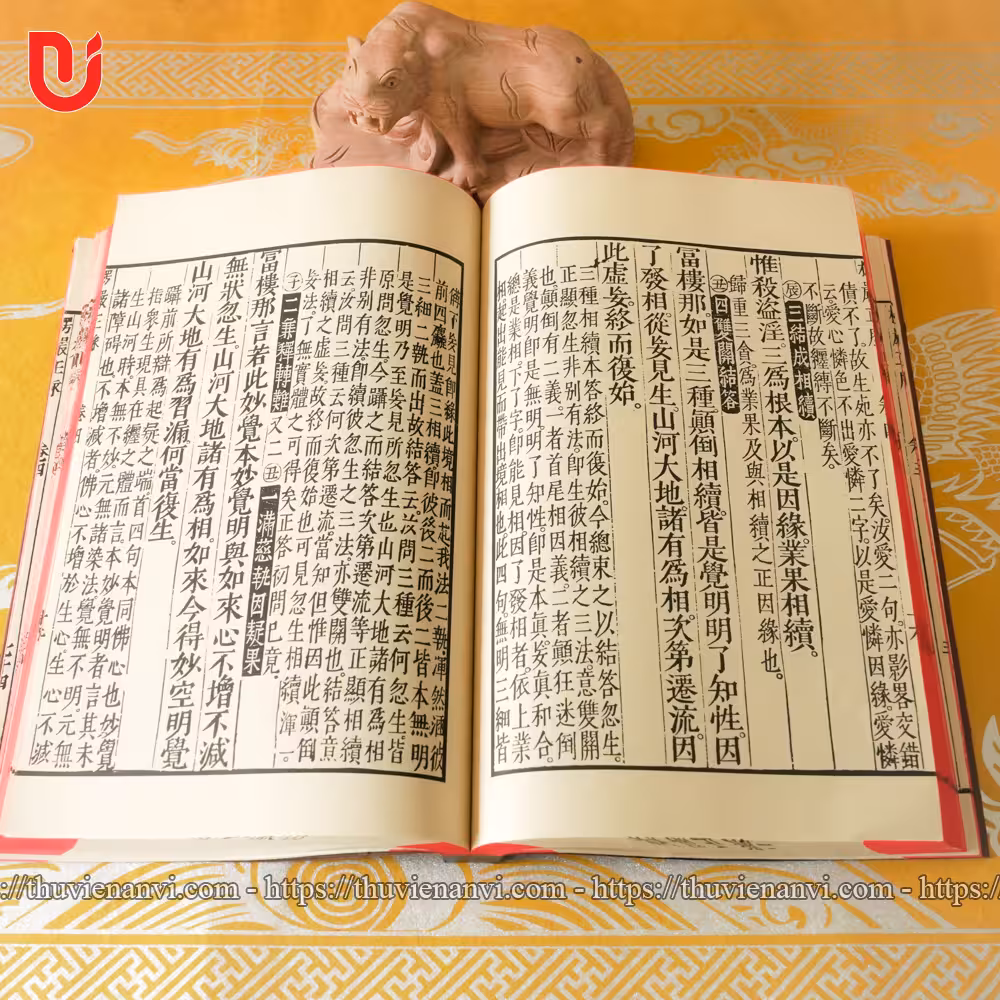 債不了。故生死亦不了矣。汝愛二句。亦影畧交錯
云。愛心憐色。不出愛憐二字。以是愛憐因緣。愛憐
不斷故纏縛不斷矣。
辰三結成相續
惟殺盜淫三為根本以是因緣。業果相續。
歸重三貪為業果及與相續之正因緣也。
丑四雙關結答
富樓那。如是三種顛倒相續。皆是覺明明了知性。因
了發相。從妄見生。山河大地諸有為相。次第遷流。因
此虛妄。終而復始。
三種相續。本答終而復始。今總束之以結答忽生。
正顯忽生。非別有法。即生彼相續之三法。意雙關
也。顛倒有二義。一者首尾相因義。二者顛狂迷倒
義。覺明即是無明。明了知性。即是本真。妄真和合。
總是業相。下了字。即能見相。因了發相者。依上業
相。發出能見。而帶出境相也。此四句。無明三細皆
妄見即緣此境相而起我法二執。渾然涵彼
前四麤也。蓋三相續即彼後二而後二皆本無明
三細二執而出故結答云汝問三種云何忽生皆
是覺明乃至妄見所忽生也山河大地諸有為相
原問忽生。今躡之而結答次第遷流等正顯相續
非別有法即續彼忽生之三法亦雙關也。結答意
云汝問三種云何次第遷流。當知但惟因此顛倒
相續之虛妄故終而復始也可見忽生相續渾一
妄法。了無實體之可得矣正答初問已竟。
子二乘釋轉難 又二 丑一滿慈執因疑果
富樓那言若此妙覺本妙覺明與如來心不增不減
無狀忽生。山河大地諸有為相。如來今得妙空明覺
山河大地有為習漏何當復生。
躡前所辯為起疑之端首四句本同佛心也妙覺
指眾生現具在纏之體而言本妙覺明者言其未
生山河時本無不妙。元無諸染法覺無不明元無
諸障碍也不增減者佛心不增於生心。生心不減
https://thuvienanvi.com - https://thuvienanvi.com - https://thuvienanvi.com